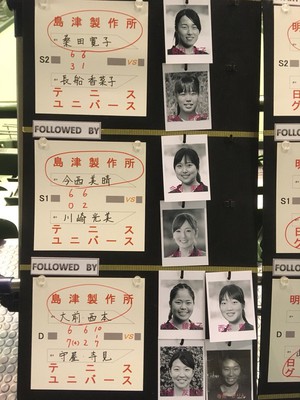 島津製作所
桑田寛子
S2 6 6 VS
3 1
長船香菜子
テニス
ユニバース
FOLLOWED BY
島津製作所
今西美晴
S1 6 6 VS
0 2
川崎光美
テニス
ユニバース
FOLLOWED BY
島津製作所
大前 西本
6 6 10
D VS
7(4) 2 7
守屋 寺見
テニス
ユニバース
明
日
明
明
日
グ